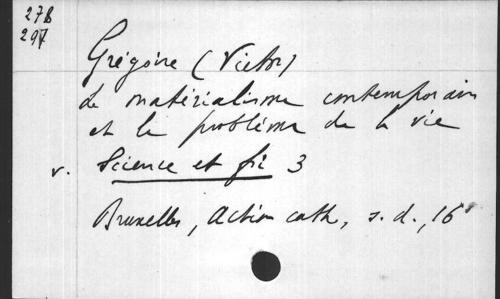 278
297
Grégoire (Victor)
Le matérialisme contemporain
et le problème de la vie
v. Science et foi 3
Bruxelles, Action cath., s.d., 16°